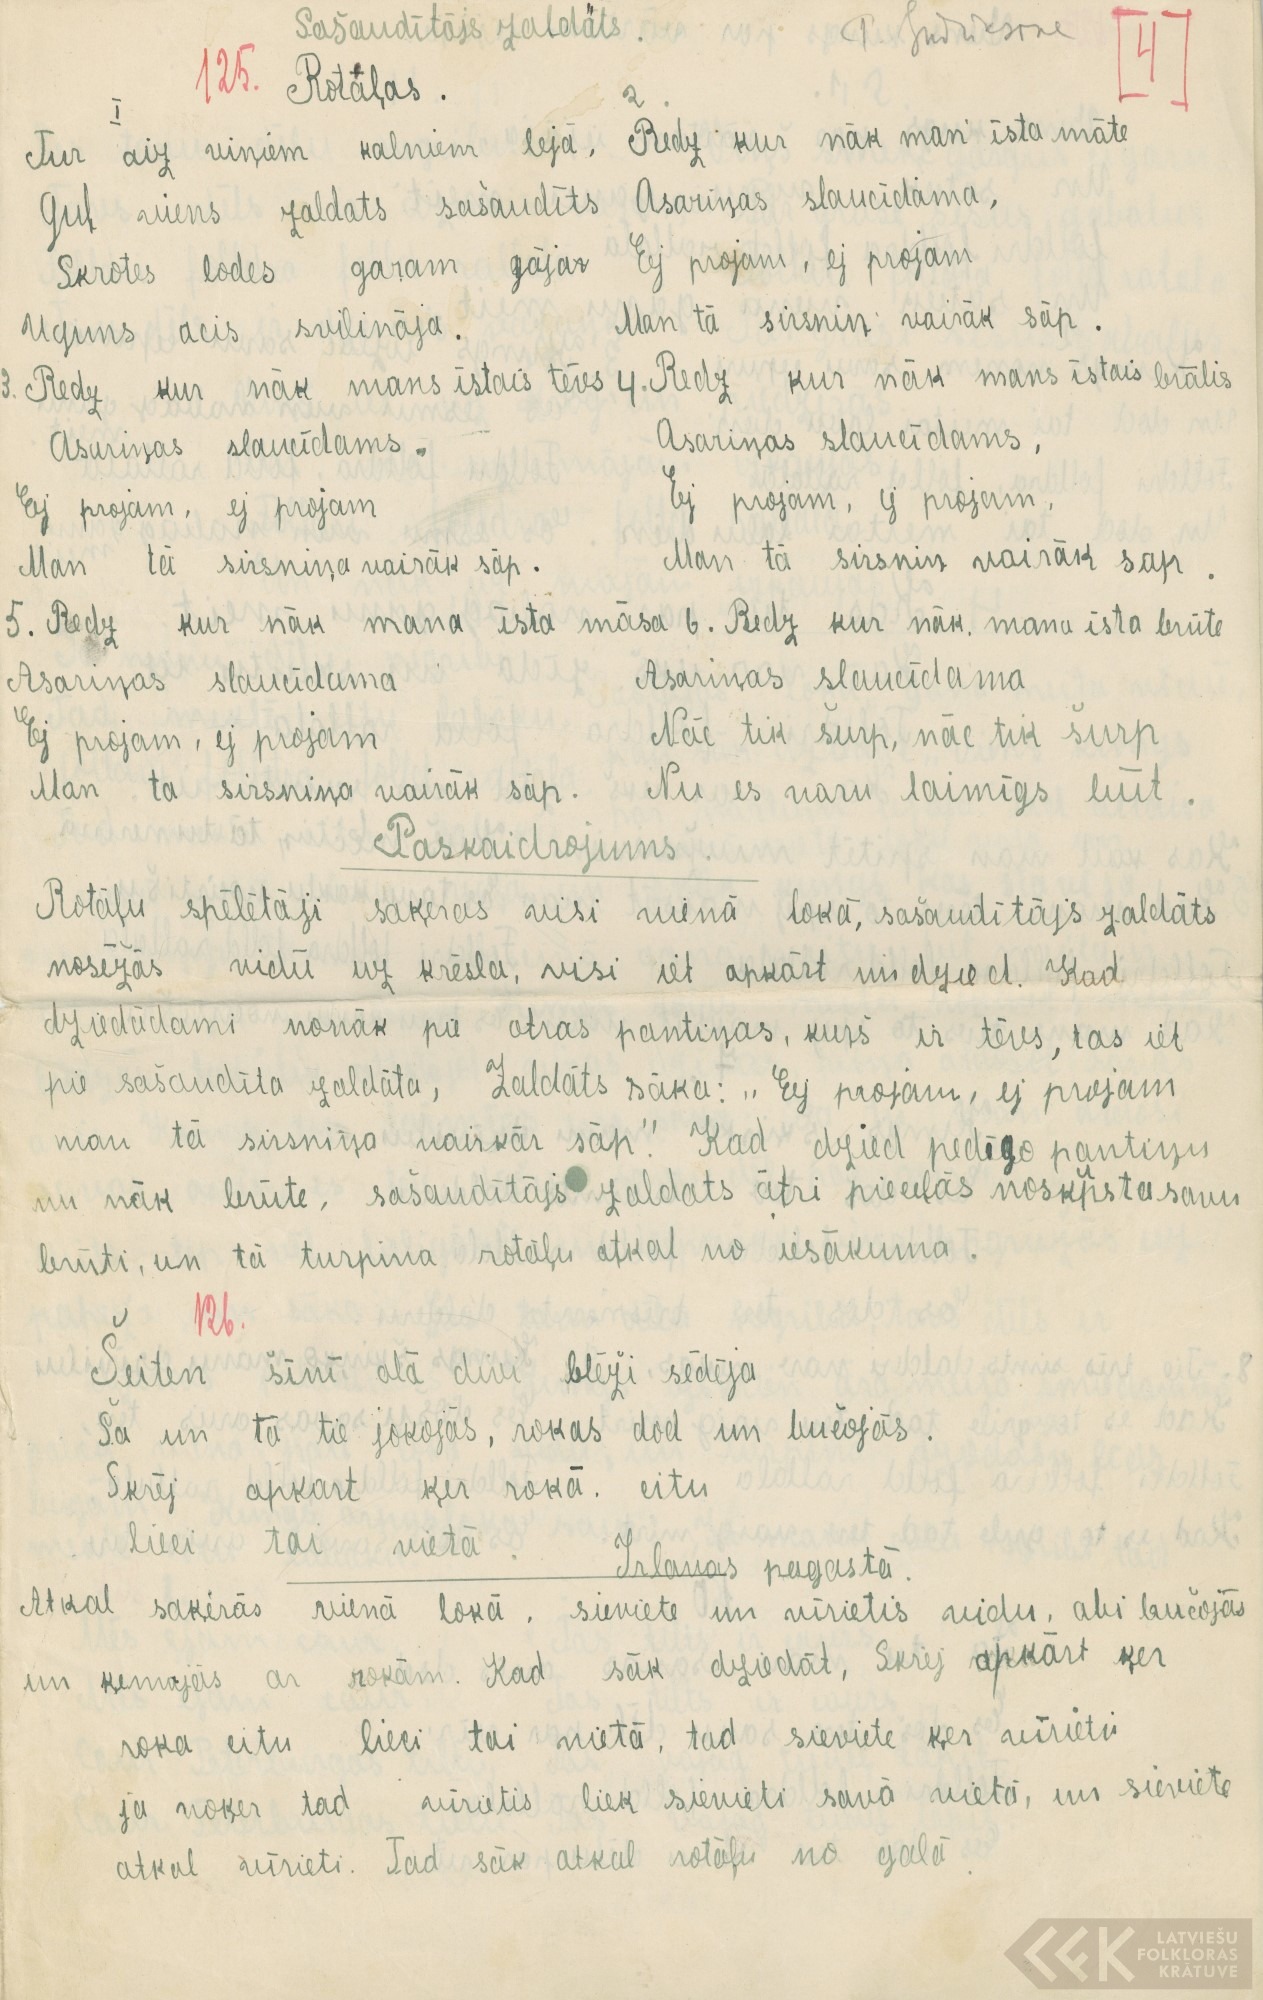 Sašaudītājs zaldāts.
P. Indriksone
[4]
125. Rotāļas.
I
Tur aiz viņiem kalniem lejā,
Guļ viens zaldats sašaudīts
Skrotes lodes garam gāja
Uguns acis svilināja.
2.
Redz kur nāk man īsta māte
Asariņas slaucīdama,
Ej projam, ej projam
Man tā sirsniņ vairāk sāp.
3. Redz kur nāk mans īstais tēvs
Asariņas slaucīdams.
Ej projam, ej projam
Man tā sirsniņa vairāk sāp.
4. Redz kur nāk mans īstais brālis
Asariņas slaucīdams,
Ej projam, ej projam,
Man tā sirsniņ vairāk sap.
5. Redz kur nāk mana īsta māsa
Asariņas slaucīdama
Ej projam, ej projam
Man ta sirsniņa vairāk sāp.
6. Redz kur nāk. mana īsta brūte
Asariņas slaucīdama
Nāc tik šurp, nāc tik šurp
Nu es varu laimīgs būt.
Paskaidrojums.
Rotāļu spēlētāji saķeras visi vienā lokā, sašaudītājs zaldāts
nosēžās vidū uz krēsla, visi iet apkārt un dzied. Kad
dziedādami nonāk pie otras pantiņas, kuŗš ir tēvs, tas iet
pie sašaudīta zaldāta, Zaldāts sāka: „Ej projam, ej projam
man tā sirsniņa vairkār sāp". Kad dzied pedīgo pantiņu
nu nāk brūte, sašaudītājs zaldats ātri pieceļās noskūpsta savu
brūti, un tā turpina rotāļu atkal no iesākuma.
126.
Šeiten šīnī alā divi blēži sēdēja
Šā un tā tie jokojās, rokas dod un bučojās.
Skrēj apkart ķer rokā. citu
lieci tai vietā.
Irlavas pagastā.
Atkal saķērās vienā lokā, sieviete un vīrietis vidu, abi bučojās
un ķemajās ar rokām. Kad sāk dziedāt, Skrēj apkārt ķer
roka citu lieci tai vietā, tad sieviete ķer vīrieti
ja noķer tad vīrietis liek sievieti savā vietā, un sieviete
atkal vīrieti. Tad sāk atkal rotāļu no galā.
LATVIEŠU
FOLKLORAS
KRĀTUVE